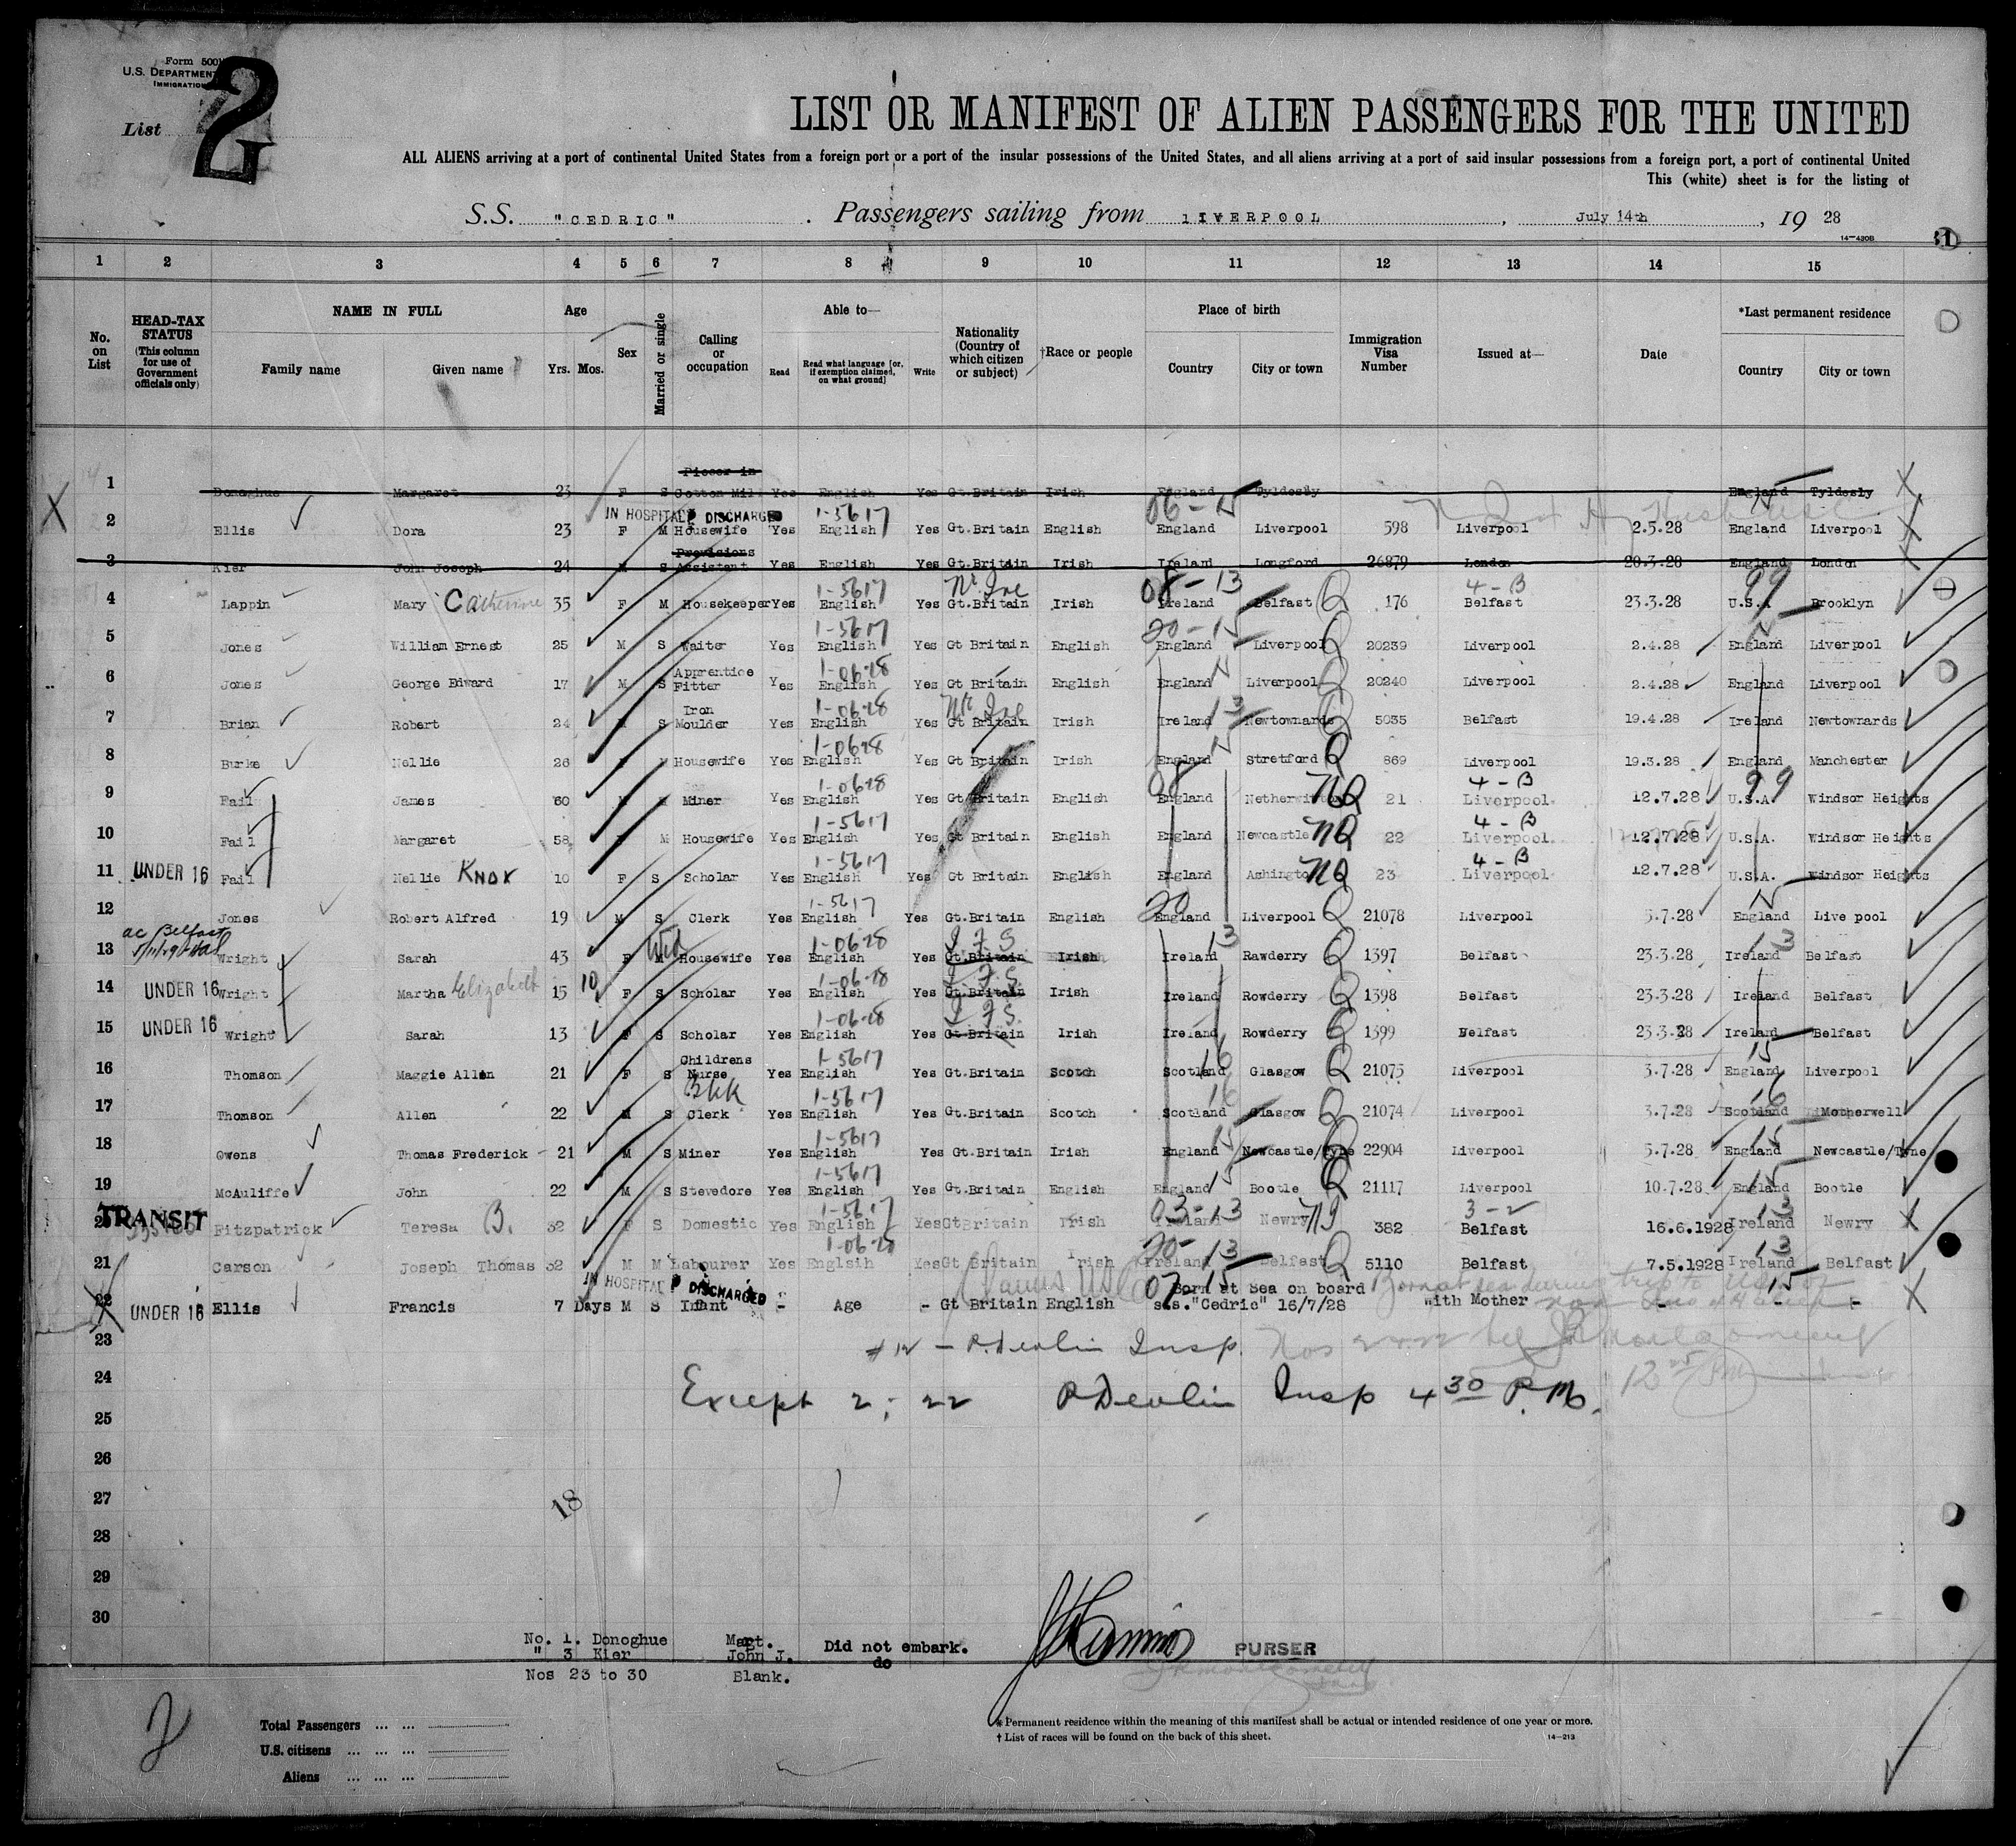 Form 500
U.S. DEPARTMENT
IMMIGRATION
List 2
LIST OR MANIFEST OF ALIEN PASSENGERS FOR THE UNITED
ALL ALIENS arriving at a port of continental United States from a foreign port or a port of the insular possessions of the United States, and all aliens arriving at a port of said insular possessions from a foreign port, a port of continental United
This (white) sheet is for the listing of
S.S. "CEDRIC" . Passengers sailing from LIVERPOOL , July 14th , 19 28
14-430B
1 2 3 4 5 6 7 8 9 10 11 12 13 14 15
No. on List
HEAD-TAX STATUS (This column for use of Government officials only)
NAME IN FULL
Family name Given name
Age
Yrs. Mos.
Sex
Married or single
Calling or occupation
Able to—
Read Read what language [or, if exemption claimed, on what ground] Write
Nationality (Country of which citizen or subject)
†Race or people
Place of birth
Country City or town
Immigration Visa Number
Issued at—
Date
*Last permanent residence
Country City or town
1 Donoghue Margaret 23 F S Piecer in Cotton Mill Yes English Yes Gt.Britain Irish England Tyldesly England Tyldesly
IN HOSPITAL DISCHARGED 1-5617 06-15
2 Ellis Dora 23 F M Housewife Yes English Yes Gt.Britain English England Liverpool 598 Liverpool 2.5.28 England Liverpool
3 Kier John Joseph 24 M S Provisions Assistant Yes English Yes Gt.Britain Irish Ireland Longford 26879 London 20.3.28 England London
1-5617 Nr. Ire 08-13 4-B 99
4 Lappin Mary Catherine 35 F M Housekeeper Yes English Yes Gt.Britain Irish Ireland Belfast Q 176 Belfast 23.3.28 U.S.A Brooklyn
1-5617 20-15
5 Jones William Ernest 25 M S Waiter Yes English Yes Gt Britain English England Liverpool Q 20239 Liverpool 2.4.28 England Liverpool
1-0628
6 Jones George Edward 17 M S Apprentice Fitter Yes English Yes Gt Britain English England Liverpool Q 20240 Liverpool 2.4.28 England Liverpool
1-0628 Nr. Ire 13
7 Brian Robert 24 M S Iron Moulder Yes English Yes Gt Britain Irish Ireland Newtownards Q 5035 Belfast 19.4.28 Ireland Newtownards
1-0628
8 Burke Nellie 26 F M Housewife Yes English Yes Gt Britain Irish England Stretford Q 869 Liverpool 19.3.28 England Manchester
1-0628 08 4-B 99
9 Fail James 60 M M Miner Yes English Yes Gt Britain English England NQ 21 Liverpool 12.7.28 U.S.A Windsor Heights
1-5617 4-B
10 Fail Margaret 58 F M Housewife Yes English Yes Gt Britain English England Newcastle NQ 22 Liverpool 12.7.28 U.S.A. Windsor Heights
1-5617 4-B
11 UNDER 16 Fail Nellie KNOX 10 F S Scholar Yes English Yes Gt Britain English England Ashington NQ 23 Liverpool 12.7.28 U.S.A. Windsor Heights
1-5617 20
12 Jones Robert Alfred 19 M S Clerk Yes English Yes Gt.Britain English England Liverpool Q 21078 Liverpool 5.7.28 England Live pool
ac Belfast
Wid 1-0628 I F S 13 13
13 Wright Sarah 43 F M Housewife Yes English Yes Gt.Britain Irish Ireland Rawderry Q 1397 Belfast 23.3.28 Ireland Belfast
10 1-0628 I F S
14 UNDER 16 Wright Martha Elizabeth 15 F S Scholar Yes English Yes Gt.Britain Irish Ireland Rowderry Q 1398 Belfast 23.3.28 Ireland Belfast
1-0628 I F S
15 UNDER 16 Wright Sarah 13 F S Scholar Yes English Yes Gt-Britain Irish Ireland Rowderry Q 1399 Belfast 23.3.28 Ireland Belfast
1-5617 16 15
16 Thomson Maggie Allan 21 F S Childrens Nurse Yes English Yes Gt.Britain Scotch Scotland Glasgow Q 21075 Liverpool 3.7.28 England Liverpool
1-5617 16 16
17 Thomson Allen 22 M S Clerk Yes English Yes Gt.Britain Scotch Scotland Glasgow Q 21074 Liverpool 3.7.28 Scotland Motherwell
1-5617 15 15
18 Owens Thomas Frederick 21 M S Miner Yes English Yes Gt.Britain Irish England Newcastle/Tyne Q 22904 Liverpool 5.7.28 England Newcastle/Tyne
1-5617 15 15
19 McAuliffe John 22 M S Stevedore Yes English Yes Gt.Britain English England Bootle Q 21117 Liverpool 10.7.28 England Bootle
TRANSIT 1-5617 03-13 3-2 13
20 Fitzpatrick Teresa B. 32 F S Domestic Yes English Yes Gt Britain Irish Ireland Newry 382 Belfast 16.6.1928 Ireland Newry
1-0628 20-13 13
21 Carson Joseph Thomas 32 M M Labourer Yes Englsih Yes Gt Britain Irish Ireland Belfast Q 5110 Belfast 7.5.1928 Ireland Belfast
IN HOSPITAL DISCHARGED 07 15 15
22 UNDER 16 Ellis Francis 7 Days M S Infant - Age - Gt Britain English Born at Sea on board s.s."Cedric" 16/7/28 with Mother - - -
23 # 12 — P. Devlin Insp.
24 Except 2; 22 P Devlin Insp 4 30 P.M.
25
26
27
18
28
29
30
No. 1. Donoghue Magt. Did not embark.
" 3 Kier John J. do
Nos 23 to 30 Blank.
PURSER
2
Total Passengers ... ...
U.S. citizens ... ... ...
Aliens ... ... ...
* Permanent residence within the meaning of this manifest shall be actual or intended residence of one year or more.
† List of races will be found on the back of this sheet.
14-213